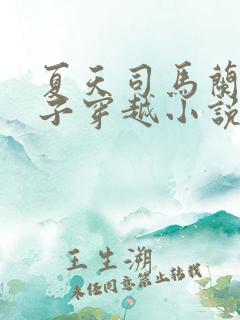 夏天司馬蘭
子穿越小說
王生溯
未经同意禁止转载